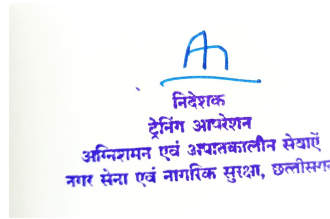 निदेशक
ट्रेनिंग आपरेशन
अग्निशमन एवं आपातकालीन सेवाऐं
नगर सेना एवं नागरिक सुरक्षा, छत्तीसगढ